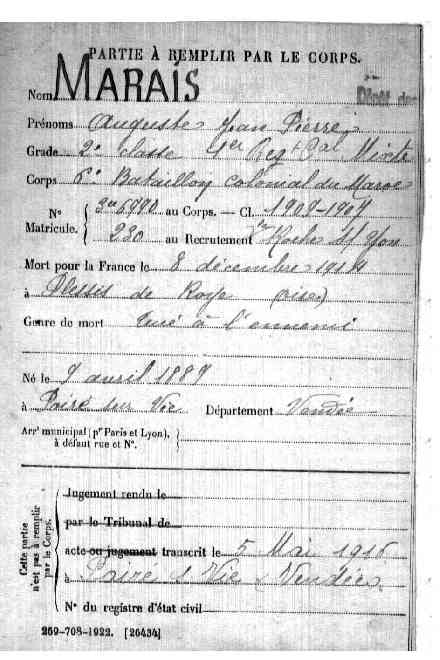 PARTIE À REMPLIR PAR LE CORPS.
Nom MARAIS
Dépôt des
Prénoms Auguste Jean Pierre
Grade 2e classe 1er Regt Cal Mixte
Corps 6e Bataillon colonial du Maroc
N° Matricule. au Corps. — Cl. 1909-1909
230 au Recrutement La Roche S/ Yon
Mort pour la France le 8 décembre 1914
à Plessis de Roye (oise)
Genre de mort Tué à l'ennemi
Né le 9 avril 1889
à Poiré sur Vie Département Vendée
Arrt municipal (pr Paris et Lyon),
à défaut rue et N°.
Cette partie
n'est pas à remplir
par le Corps.
Jugement rendu le
par le Tribunal de
acte ou jugement transcrit le 5 Mai 1916
à Poiré s/ Vie (Vendée)
N° du registre d'état civil
269-708-1922. [26434]